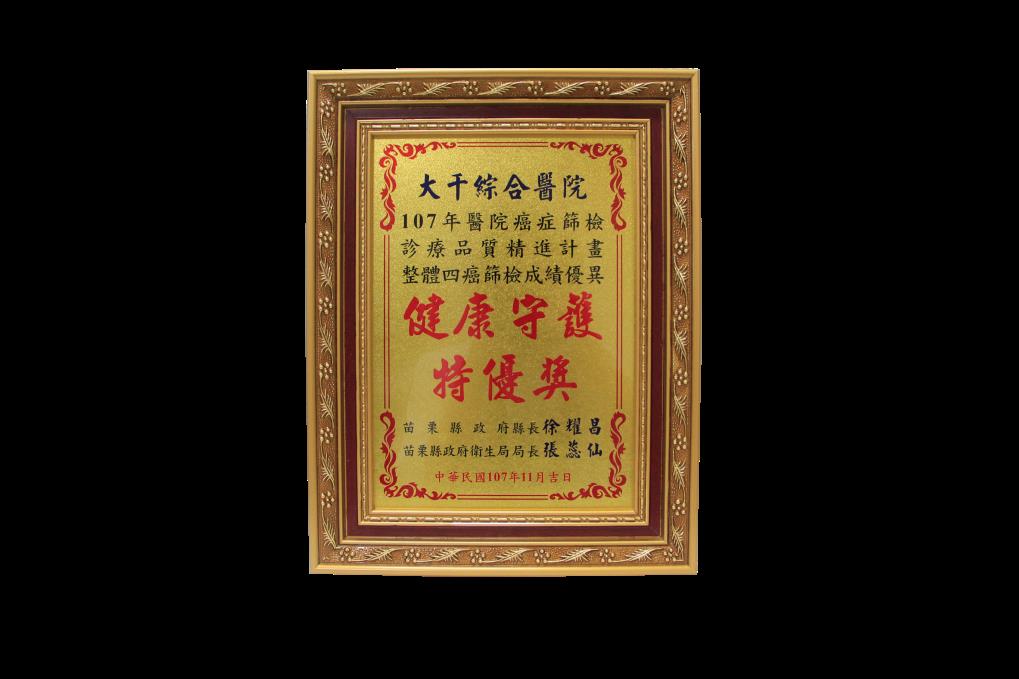 大千綜合醫院
107年醫院癌症篩檢
診療品質精進計畫
整體四癌篩檢成績優異
健康守護
特優獎
苗栗縣政府縣長徐耀昌
苗栗縣政府衛生局局長張蕊仙
中華民國107年11月吉日